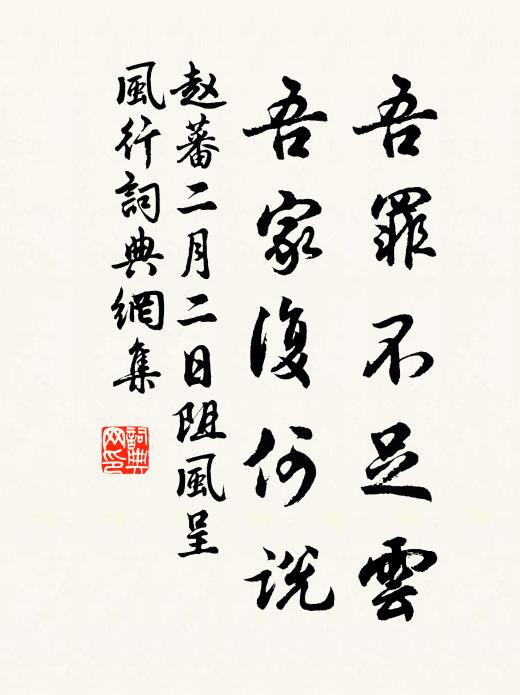 吾罪不足雲
吾家復何说
赵蕃二月二日阻風呈
風行詞典網集
詞典网印